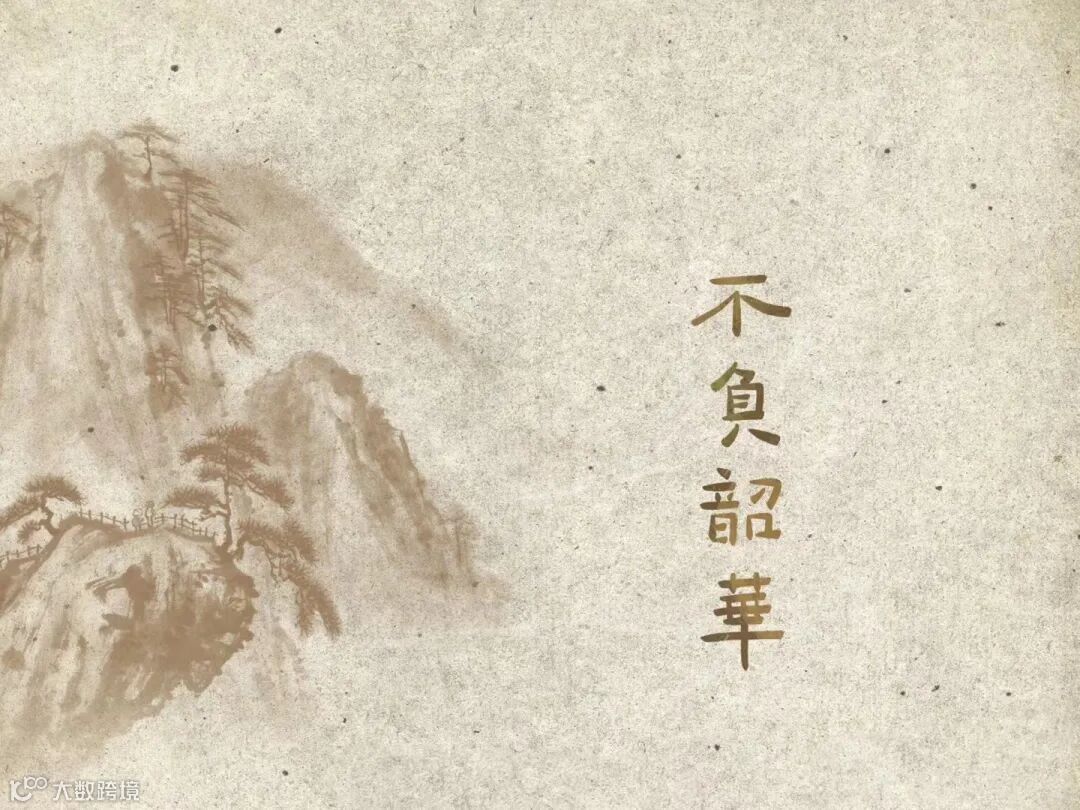 不負韶華
大数跨境